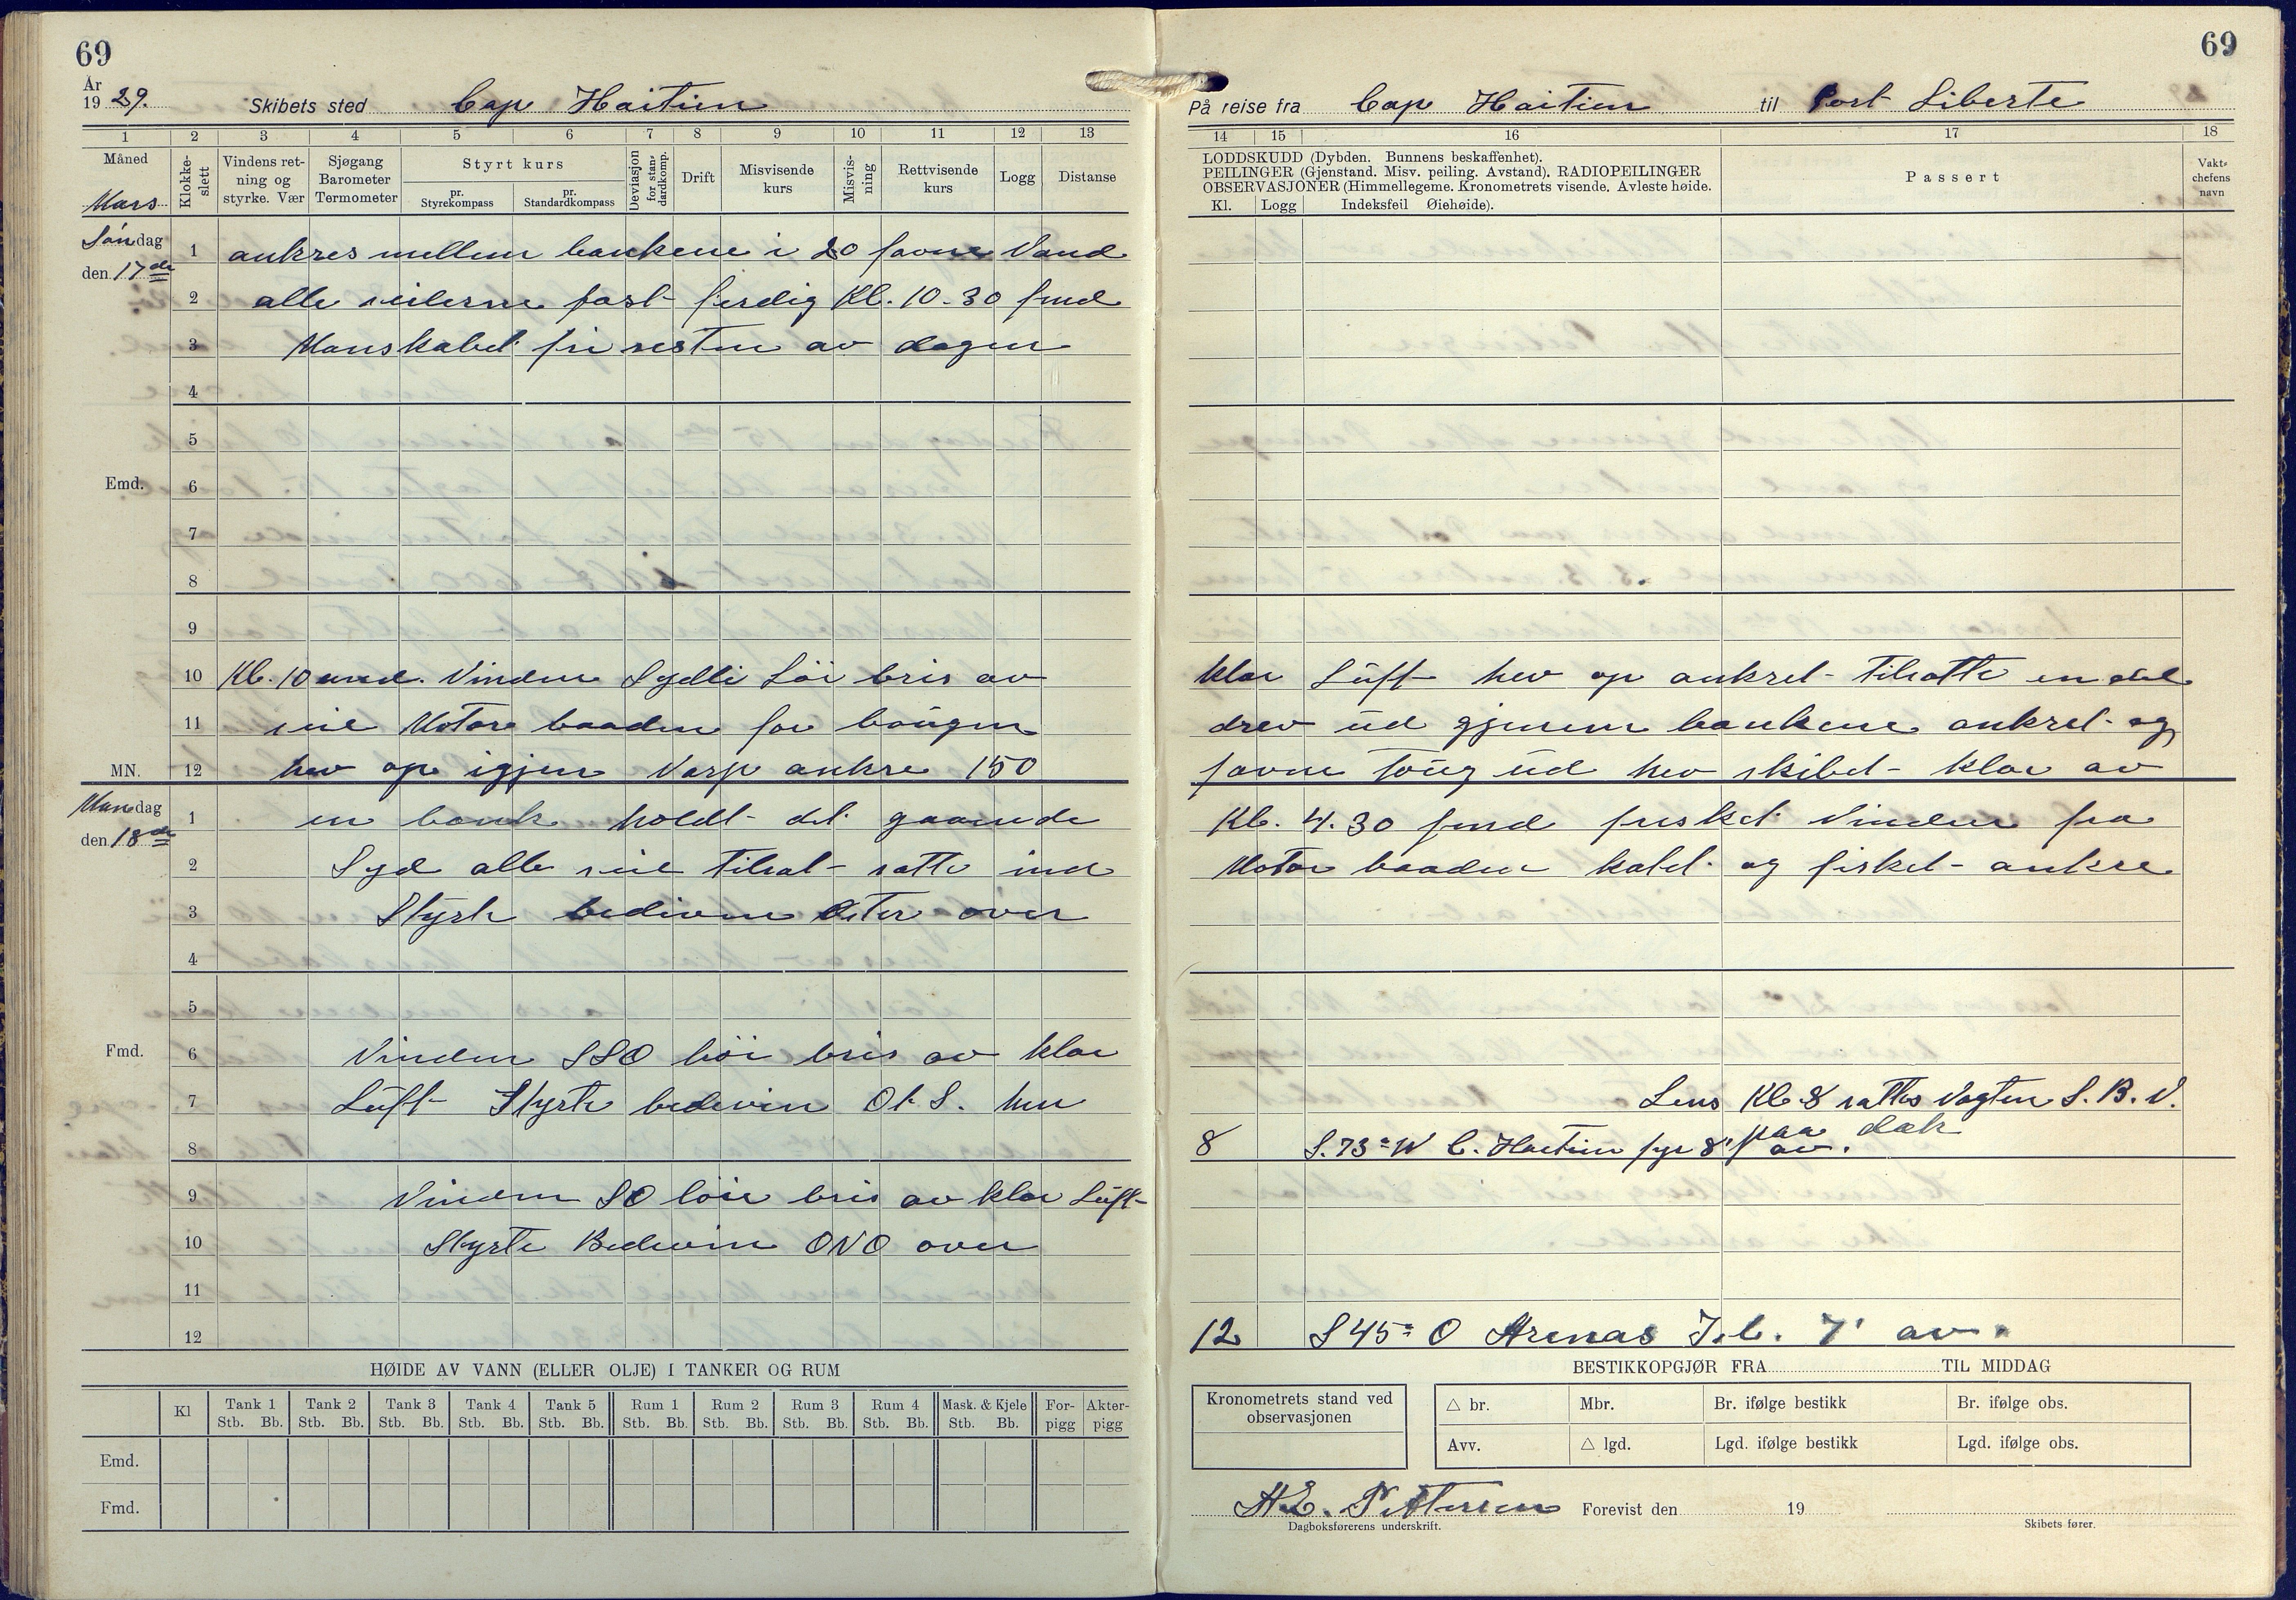 69
År
1929. Skibets sted Cap Haitien
1 2 3 4 5 6 7 8 9 10 11 12 13
Måned
Mars
Klokke-
slett
Vindens ret-
ning og
styrke. Vær
Sjøgang
Barometer
Termometer
Styrt kurs
pr.
Styrekompass
pr.
Standardkompass
Deviasjon
for stan-
dardkomp.
Drift
Misvisende
kurs
Misvis-
ning
Rettvisende
kurs
Logg
Distanse
Søndag
den 17de
1 ankres mellem bankene i 20 favne Vand
2 alle seilerne fast ferdig Kl. 10.30 fmd
3 Manskabet fri resten av dagen
4
5
Emd. 6
7
8
9
10 Kl. 10 emd. Vinden Sydli løi bris av
11 seil Motore baaden for baugen
MN. 12 hev op igjen Varp ankre 150
Mandag
den 18de
1 en bank holdt det gaaende
2 Syd alle seil tilsat satte ind
3 Styrte bedivin Øster over
4
5
Fmd. 6 Vinden SSO løi bris av klar
7 Luft Styrte bedivin Ot S. hen
8
9 Vinden SO løie bris av klar Luft
10 Styrte Bedivin ONO over
11
12
HØIDE AV VANN (ELLER OLJE) I TANKER OG RUM
Kl
Tank 1 Tank 2 Tank 3 Tank 4 Tank 5 Rum 1 Rum 2 Rum 3 Rum 4 Mask. & Kjele For-
pigg Akter-
pigg
Stb. Bb. Stb. Bb. Stb. Bb. Stb. Bb. Stb. Bb. Stb. Bb. Stb. Bb. Stb. Bb. Stb. Bb. Stb. Bb.
Emd.
Fmd.
69
På reise fra Cap Haitien til Port Liberte
14 15 16 17 18
LODDSKUDD (Dybden. Bunnens beskaffenhet).
PEILINGER (Gjenstand. Misv. peiling. Avstand). RADIOPEILINGER
OBSERVASJONER (Himmellegeme. Kronometrets visende. Avleste høide.
Kl. Logg Indeksfeil Øiehøide).
Passert
Vakt-
chefens
navn
klar Luft hev op ankret tilsatte en del
drev ud gjenem bankene ankret og
favne Toug ud hev skibet klar av
Kl. 4.30 fmd frisket Vinden fra
Motor baaden katet og fisket ankre
Lens Kl. 8 sattes Vagten S.B.V.
paa dæk
8 S. 73° W C. Haitien fyr 8' av.
12 S 45° O Arenas 7' av.
BESTIKKOPGJØR FRA TIL MIDDAG
Kronometrets stand ved
observasjonen
△ br. Mbr. Br. ifølge bestikk Br. ifølge obs.
Avv. △ lgd. Lgd. ifølge bestikk Lgd. ifølge obs.
A.E. Pettersen Forevist den 19
Dagboksførerens underskrift. Skibets fører.